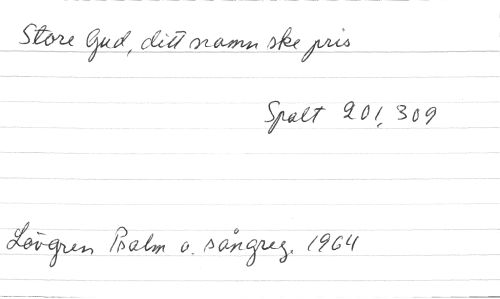 Store Gud, ditt namn ske pris
Spalt 201, 309
Lövgren Psalm o. sångreg. 1964